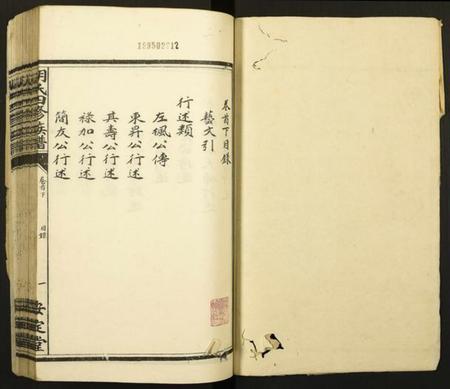 卷首下目錄
藝文引
行述類
左楓公傳
東昇公行述
其壽公行述
祿加公行述
簡友公行述
氏四修族譜
卷首下
目錄
一
安定堂